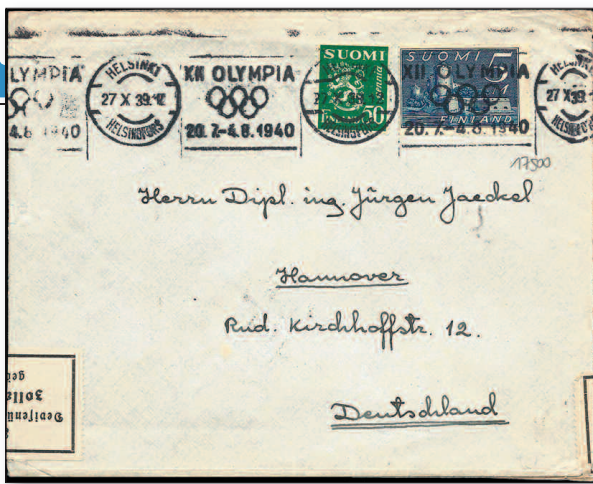 LYMPIA
4.8.1940
HELSINKI
27 X 39.12
HELSINGFORS
XII OLYMPIA
20.7.-4.8.1940
SUOMI
FINLAND
SUOMI 5
FINLAND
XII OLYMPIA
20.7.-4.8.1940
HELSINKI
27 X 39
17500
Herrn Dipl. ing. Jürgen Jaeckel
Hannover
Rud. Kirchhoffstr. 12.
Deutschland